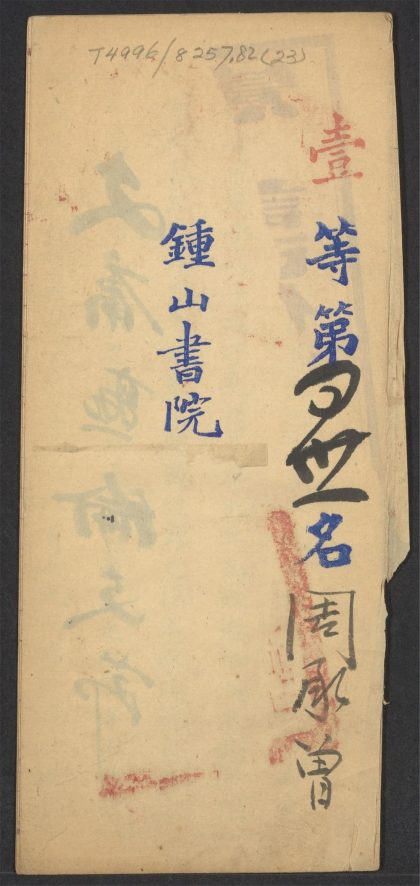 T4996/8257.82(23)
壹等第卅一名周承曾
鍾山書院